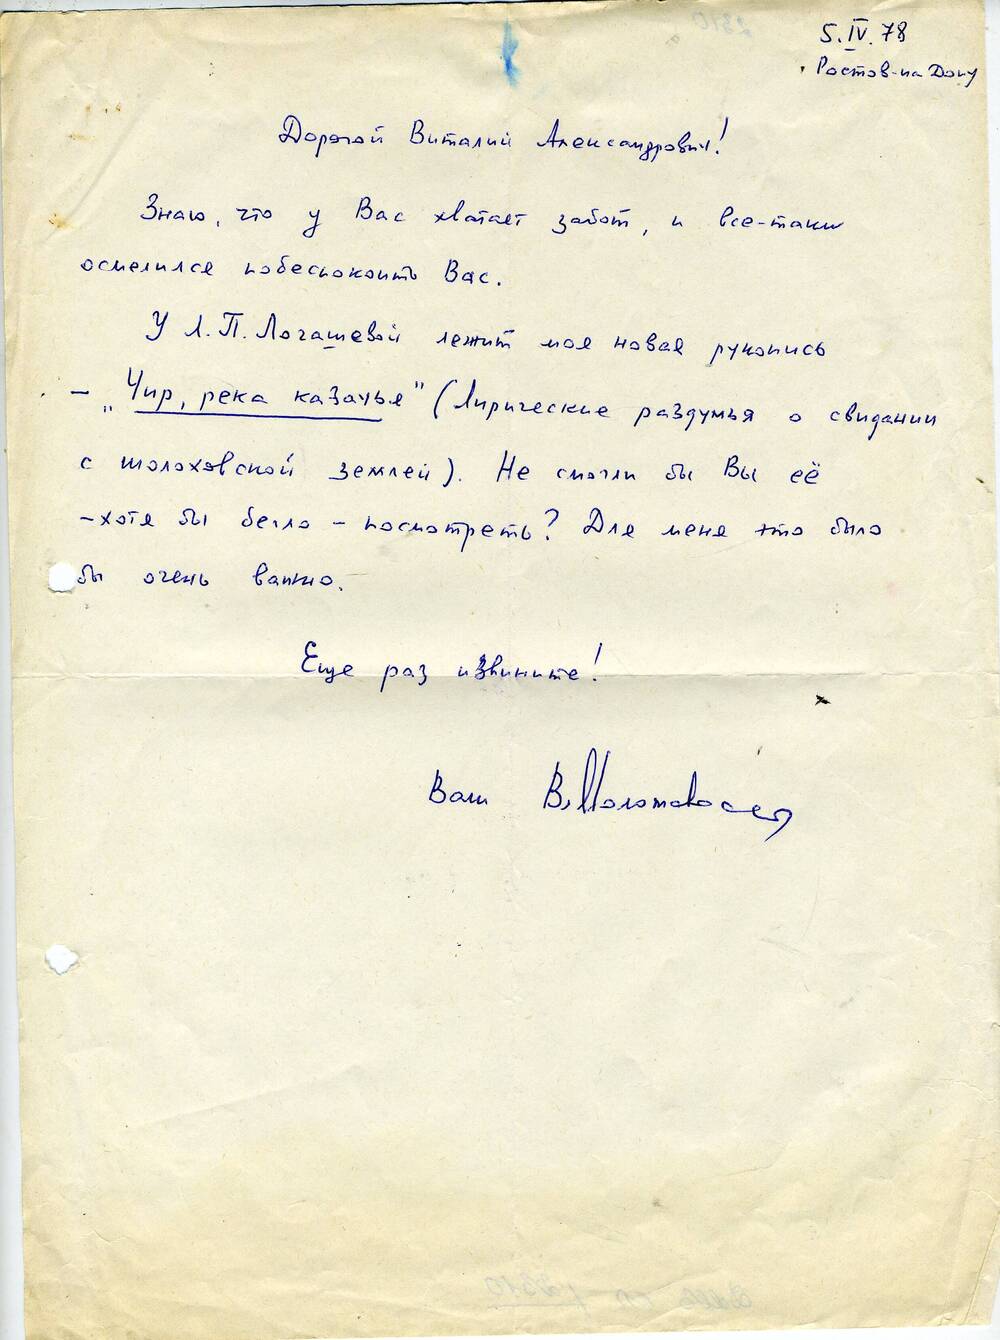 5.IV.78
Ростов-на Дону
Дорогой Виталий Александрович!
Знаю, что у Вас хватает забот, и все-таки
осмелился побеспокоить Вас.
У Л.П. Логашевой лежит моя новая рукопись
– „Чир, река казачья" (Лирические раздумья о свидании
с шолоховской землей). Не смогли бы Вы её
– хотя бы бегло – посмотреть? Для меня это было
бы очень важно.
Еще раз извините!
Ваш В.